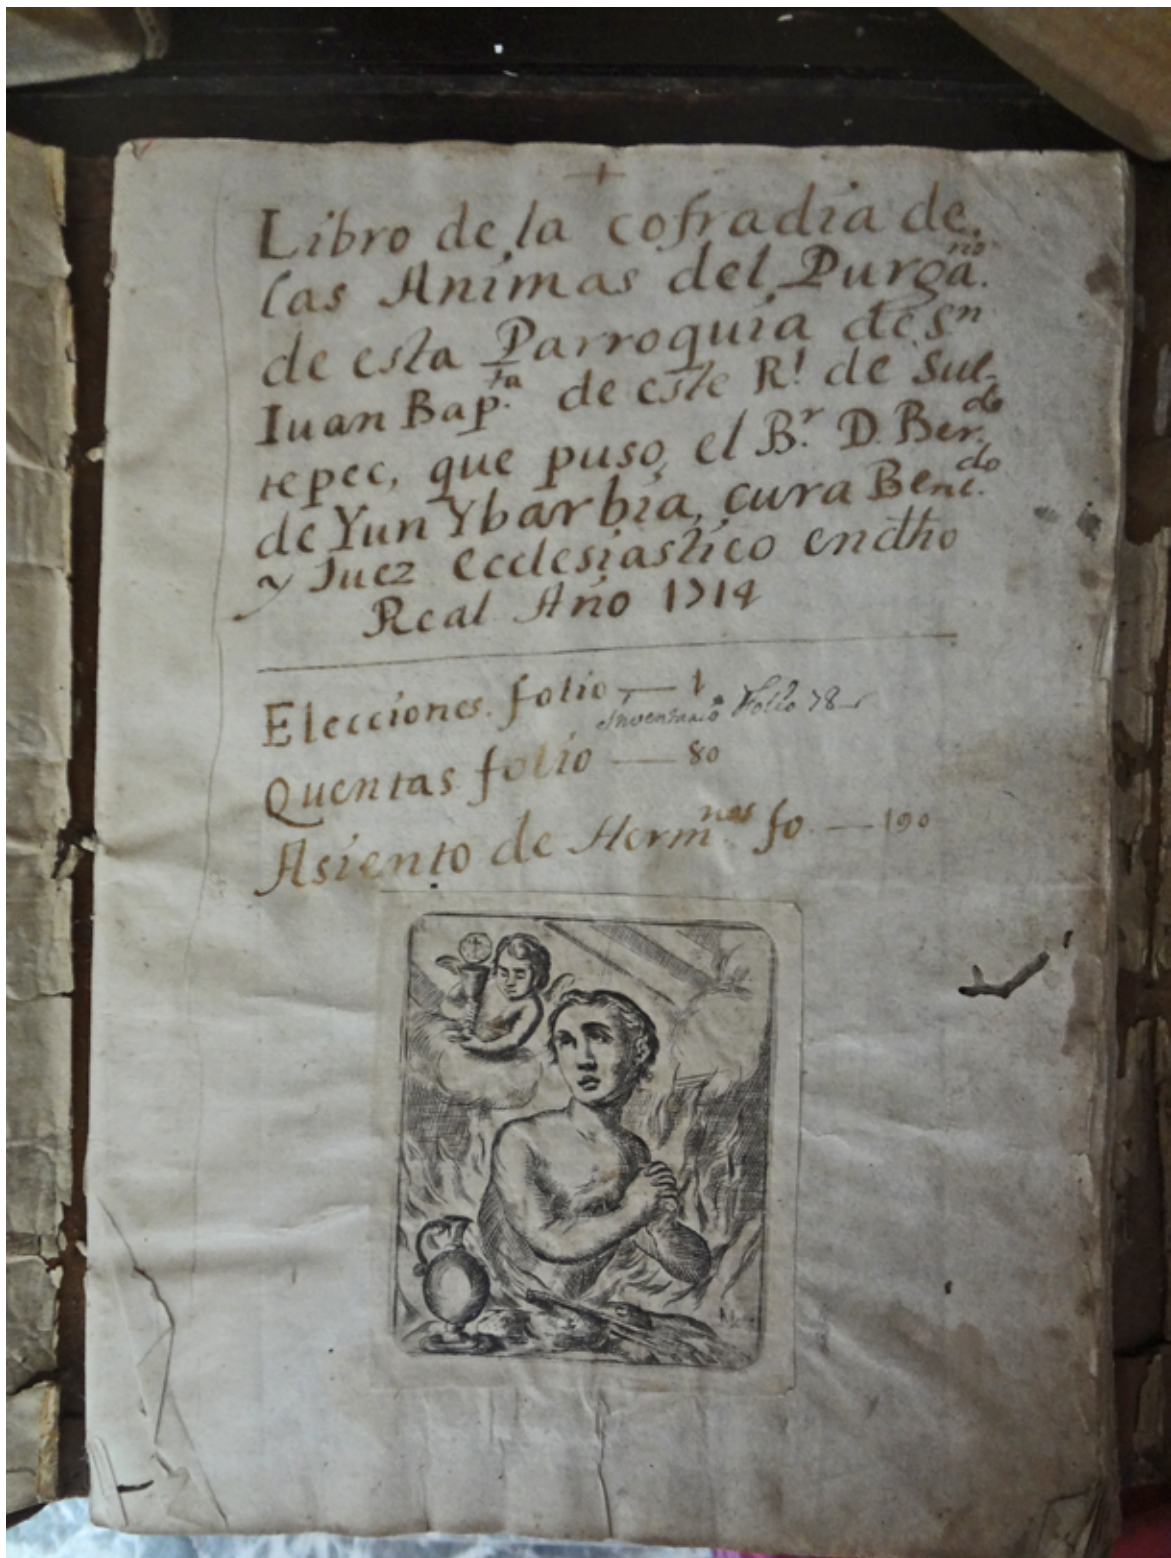 +
Libro de la cofradia de
las Animas del Purga.rio
de esta Parroquia de Sn
Iuan Bap.ta de este R.l de Sul-
tepec, que puso el B.r D. Ber.do
de Yun Ybarbia, cura Beni.do
y Juez Ecclesiastico en dho
Real Año 1714
Elecciones. folio — 1
Inventario Folio 78
Quentas folio — 80
Asiento de Herm.nos fo. — 190